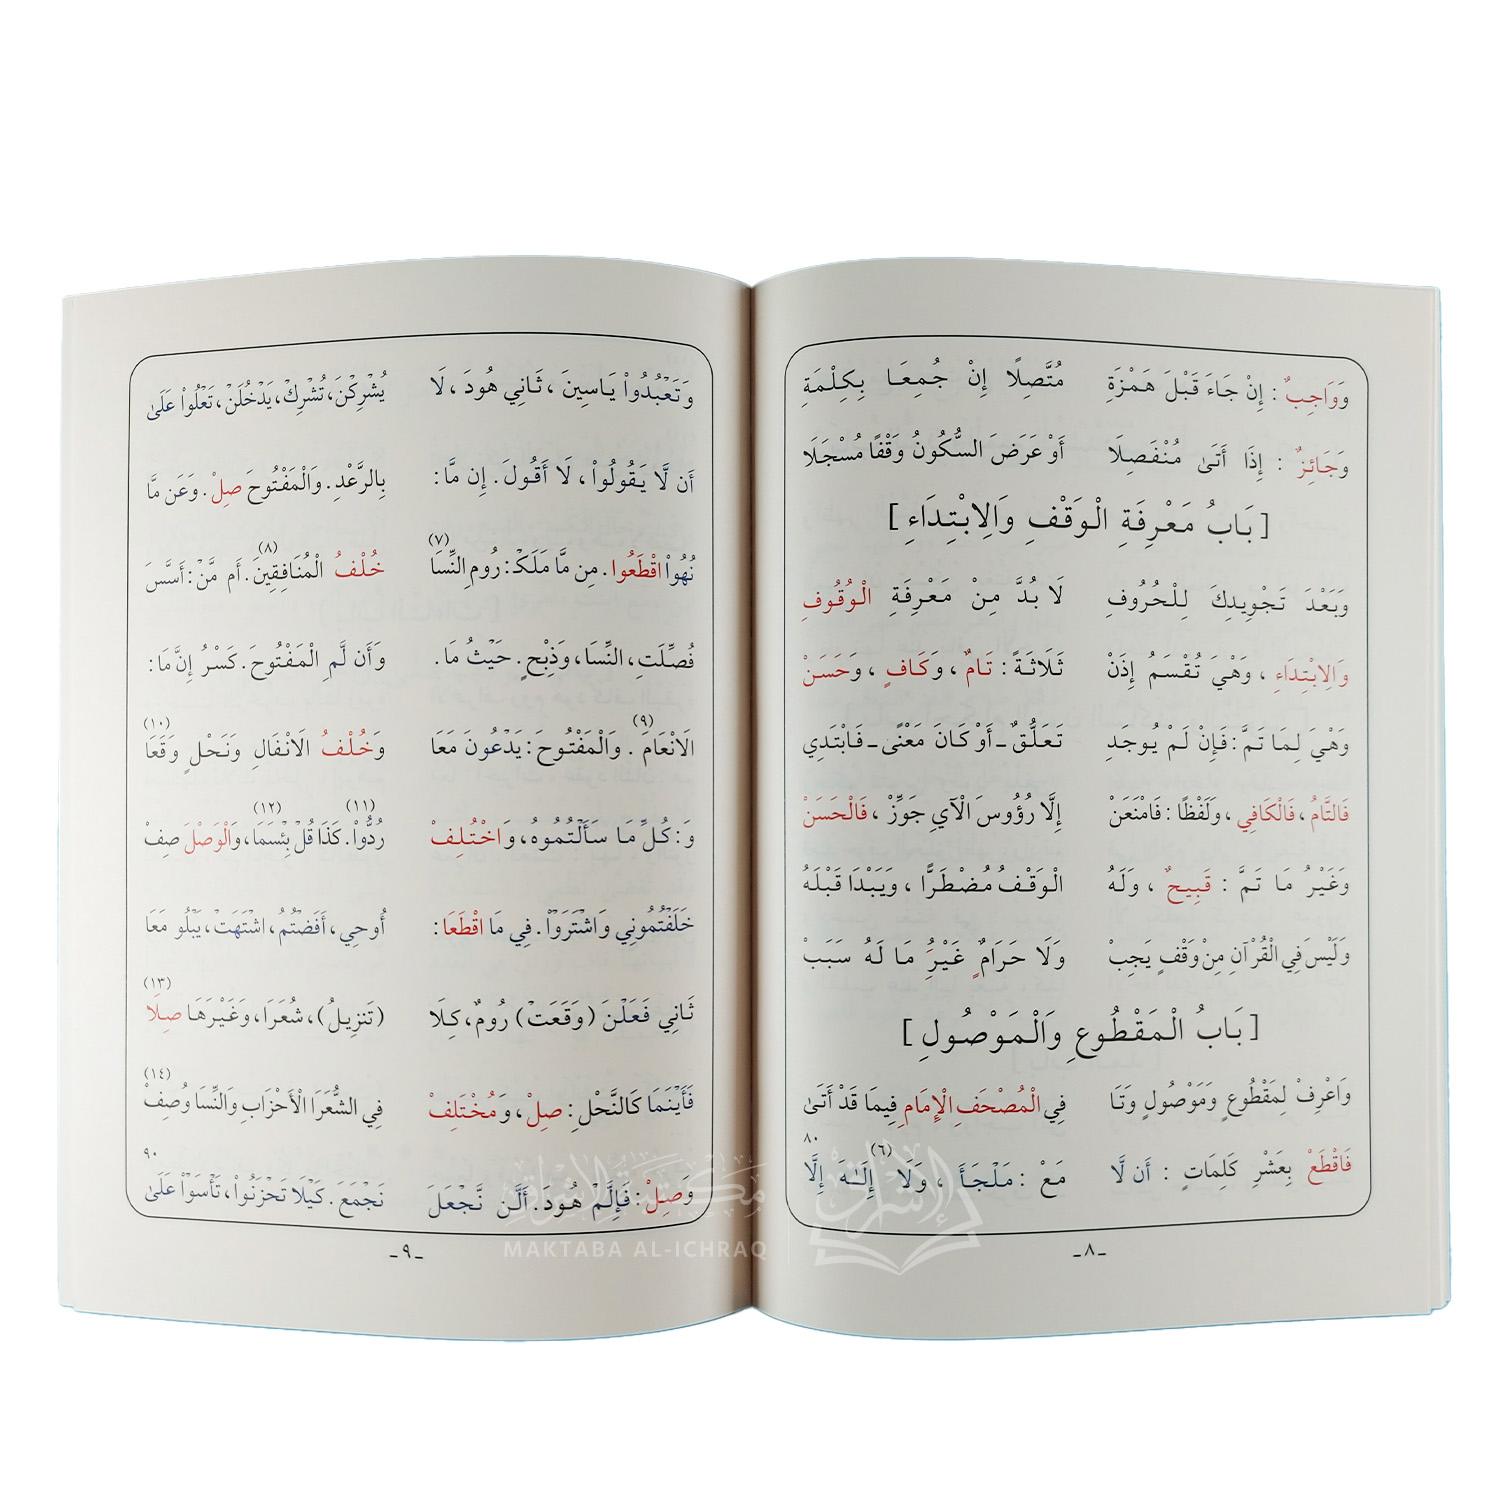 وَوَاجِبٌ : إِنْ جَاءَ قَبْلَ هَمْزَةِ مُتَّصِلًا إِنْ جُمِعَا بِكِلْمَةِ
وَجَائِزٌ : إِذَا أَتَىٰ مُنْفَصِلَا أَوْ عَرَضَ السُّكُونُ وَقْفًا مُسْجَلَا
[ بَابُ مَعْرِفَةِ الْوَقْفِ وَالِابْتِدَاءِ ]
وَبَعْدَ تَجْوِيدِكَ لِلْحُرُوفِ لَا بُدَّ مِنْ مَعْرِفَةِ الْوُقُوفِ
وَالِابْتِدَاءِ ، وَهْيَ تُقْسَمُ إِذَنْ ثَلَاثَةً : تَامٌ ، وَكَافٍ ، وَحَسَنْ
وَهْيَ لِمَا تَمَّ : فَإِنْ لَمْ يُوجَدِ تَعَلُّقٌ - أَوْ كَانَ مَعْنًى - فَابْتَدِي
فَالتَّامُ ، فَالْكَافِي ، وَلَفْظًا : فَامْنَعَنْ إِلَّا رُؤُوسَ الْآيِ جَوِّزْ ، فَالْحَسَنْ
وَغَيْرُ مَا تَمَّ : قَبِيحٌ ، وَلَهُ الْوَقْفُ مُضْطَرًّا ، وَيَبْدَا قَبْلَهُ
وَلَيْسَ فِي الْقُرْآنِ مِنْ وَقْفٍ يَجِبْ وَلَا حَرَامٌ غَيْرُ مَا لَهُ سَبَبْ
[ بَابُ الْمَقْطُوعِ وَالْمَوْصُولِ ]
وَاعْرِفْ لِمَقْطُوعٍ وَمَوْصُولٍ وَتَا فِي الْمُصْحَفِ الْإِمَامِ فِيمَا قَدْ أَتَىٰ
فَاقْطَعْ بِعَشْرِ كَلِمَاتٍ : أَن لَّا مَعْ : مَلْجَأَ ، وَلَا إِلَٰهَ إِلَّا (٦) ٨٠
-٨-
وَتَعْبُدُواْ يَاسِينَ ، ثَانِي هُودَ ، لَا يُشْرِكْنَ ، تُشْرِكْ ، يَدْخُلَنْ ، تَعْلُواْ عَلَىٰ
أَن لَّا يَقُولُواْ ، لَا أَقُولَ . إِن مَّا : بِالرَّعْدِ . وَالْمَفْتُوحَ صِلْ . وَعَن مَّا
نُهُواْ اقْطَعُوا . مِن مَّا مَلَكْ : رُومِ النِّسَا (٧) خُلْفُ الْمُنَافِقِينَ (٨) . أَم مَّنْ : أَسَّسَ
فُصِّلَتِ ، النِّسَا ، وَذِبْحٍ . حَيْثُ مَا . وَأَن لَّمِ الْمَفْتُوحَ . كَسْرُ إِنَّ مَا :
الَانْعَامَ (٩) . وَالْمَفْتُوحَ : يَدْعُونَ مَعَا وَخُلْفُ الَانْفَالِ وَنَحْلٍ وَقَعَا (١٠)
وَ : كُلِّ مَا سَأَلْتُمُوهُ ، وَاخْتُلِفْ رُدُّواْ (١١) . كَذَا قُلْ بِئْسَمَا (١٢) ، وَالْوَصْلَ صِفْ
خَلَفْتُمُونِي وَاشْتَرَوْاْ . فِي مَا اقْطَعَا : أُوحِي ، أَفَضْتُمُ ، اشْتَهَتْ ، يَبْلُو مَعَا
ثَانِي فَعَلْنَ (وَقَعَتْ) رُومٌ ، كِلَا (تَنزِيلُ) ، شُعَرَا ، وَغَيْرَهَا صِلَا (١٣)
فَأَيْنَمَا كَالنَّحْلِ : صِلْ ، وَمُخْتَلِفْ فِي الشُّعَرَا الْأَحْزَابِ وَالنِّسَا وُصِفْ (١٤)
وَصِلْ : فَإِلَّمْ هُودَ . أَلَّن نَّجْعَلَ نَجْمَعَ . كَيْلَا تَحْزَنُواْ ، تَأْسَوْاْ عَلَىٰ ٩٠
-٩-
مكتبة الإشراق
MAKTABA AL-ICHRAQ
الإشراق